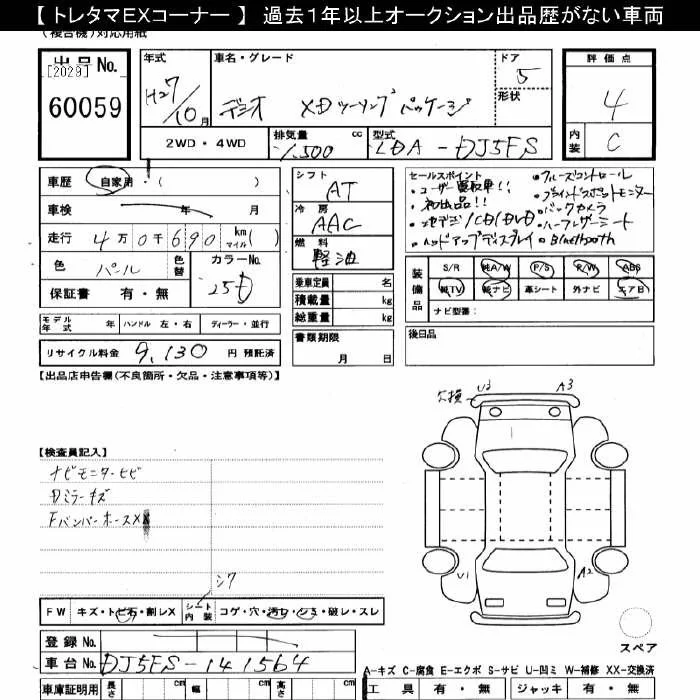 【 トレタマEXコーナー 】 過去1年以上オークション出品歴がない車両
(複合機)対応用紙
出品No.
[2029]
60059
年式
H27/10月
車名・グレード
デミオ XDツーリングパッケージ
ドア
5
形状
評価点
4
内装
C
2WD・4WD
排気量 cc
1,500
型式
LDA-DJ5FS
車歴 自家用・( )
車検 年 月
走行 4万0千690 km マイル( )
色 パール
色替
カラーNo.
25D
保証書 有・無
シフト
AT
冷房
AAC
燃料
軽油
乗車定員 名
積載量 kg
総重量 kg
セールスポイント
・ユーザー買取車!!
・初出品!!
・フルセグTV/CD/DVD
・ヘッドアップディスプレイ
・クルーズコントロール
・ブラインドスポットモニター
・バックカメラ
・ハーフレザーシート
・Bluetooth
装備品
S/R 純A/W P/S R/W ABS
純TV 純ナビ 革シート 外ナビ エアB
ナビ型番:
モデル年式 年 ハンドル 左・右 ディーラー・並行
リサイクル料金 9,130 円 預託済
書類期限
月 日
後日品
【出品店申告欄(不良箇所・欠品・注意事項等)】
欠損 U3 A3
【検査員記入】
ナビモニターヒビ
Dミラーキズ
Fバンパーホース X
シワ
U1 A2
FW キズ・トビ石・割レX
シート内装 コゲ・穴・汚レ・シミ・破レ・スレ
スペア
登録 No.
車台 No. DJ5FS-141564
A-キズ C-腐食 E-エクボ S-サビ U-凹ミ W-補修 XX-交換済
車庫証明用 長さ cm 幅 cm 高さ cm
工具 有・無 ジャッキ 有・無